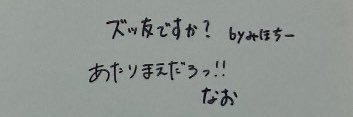 ズッ友ですか? byみほちー
あたりまえだろっ!!
なお